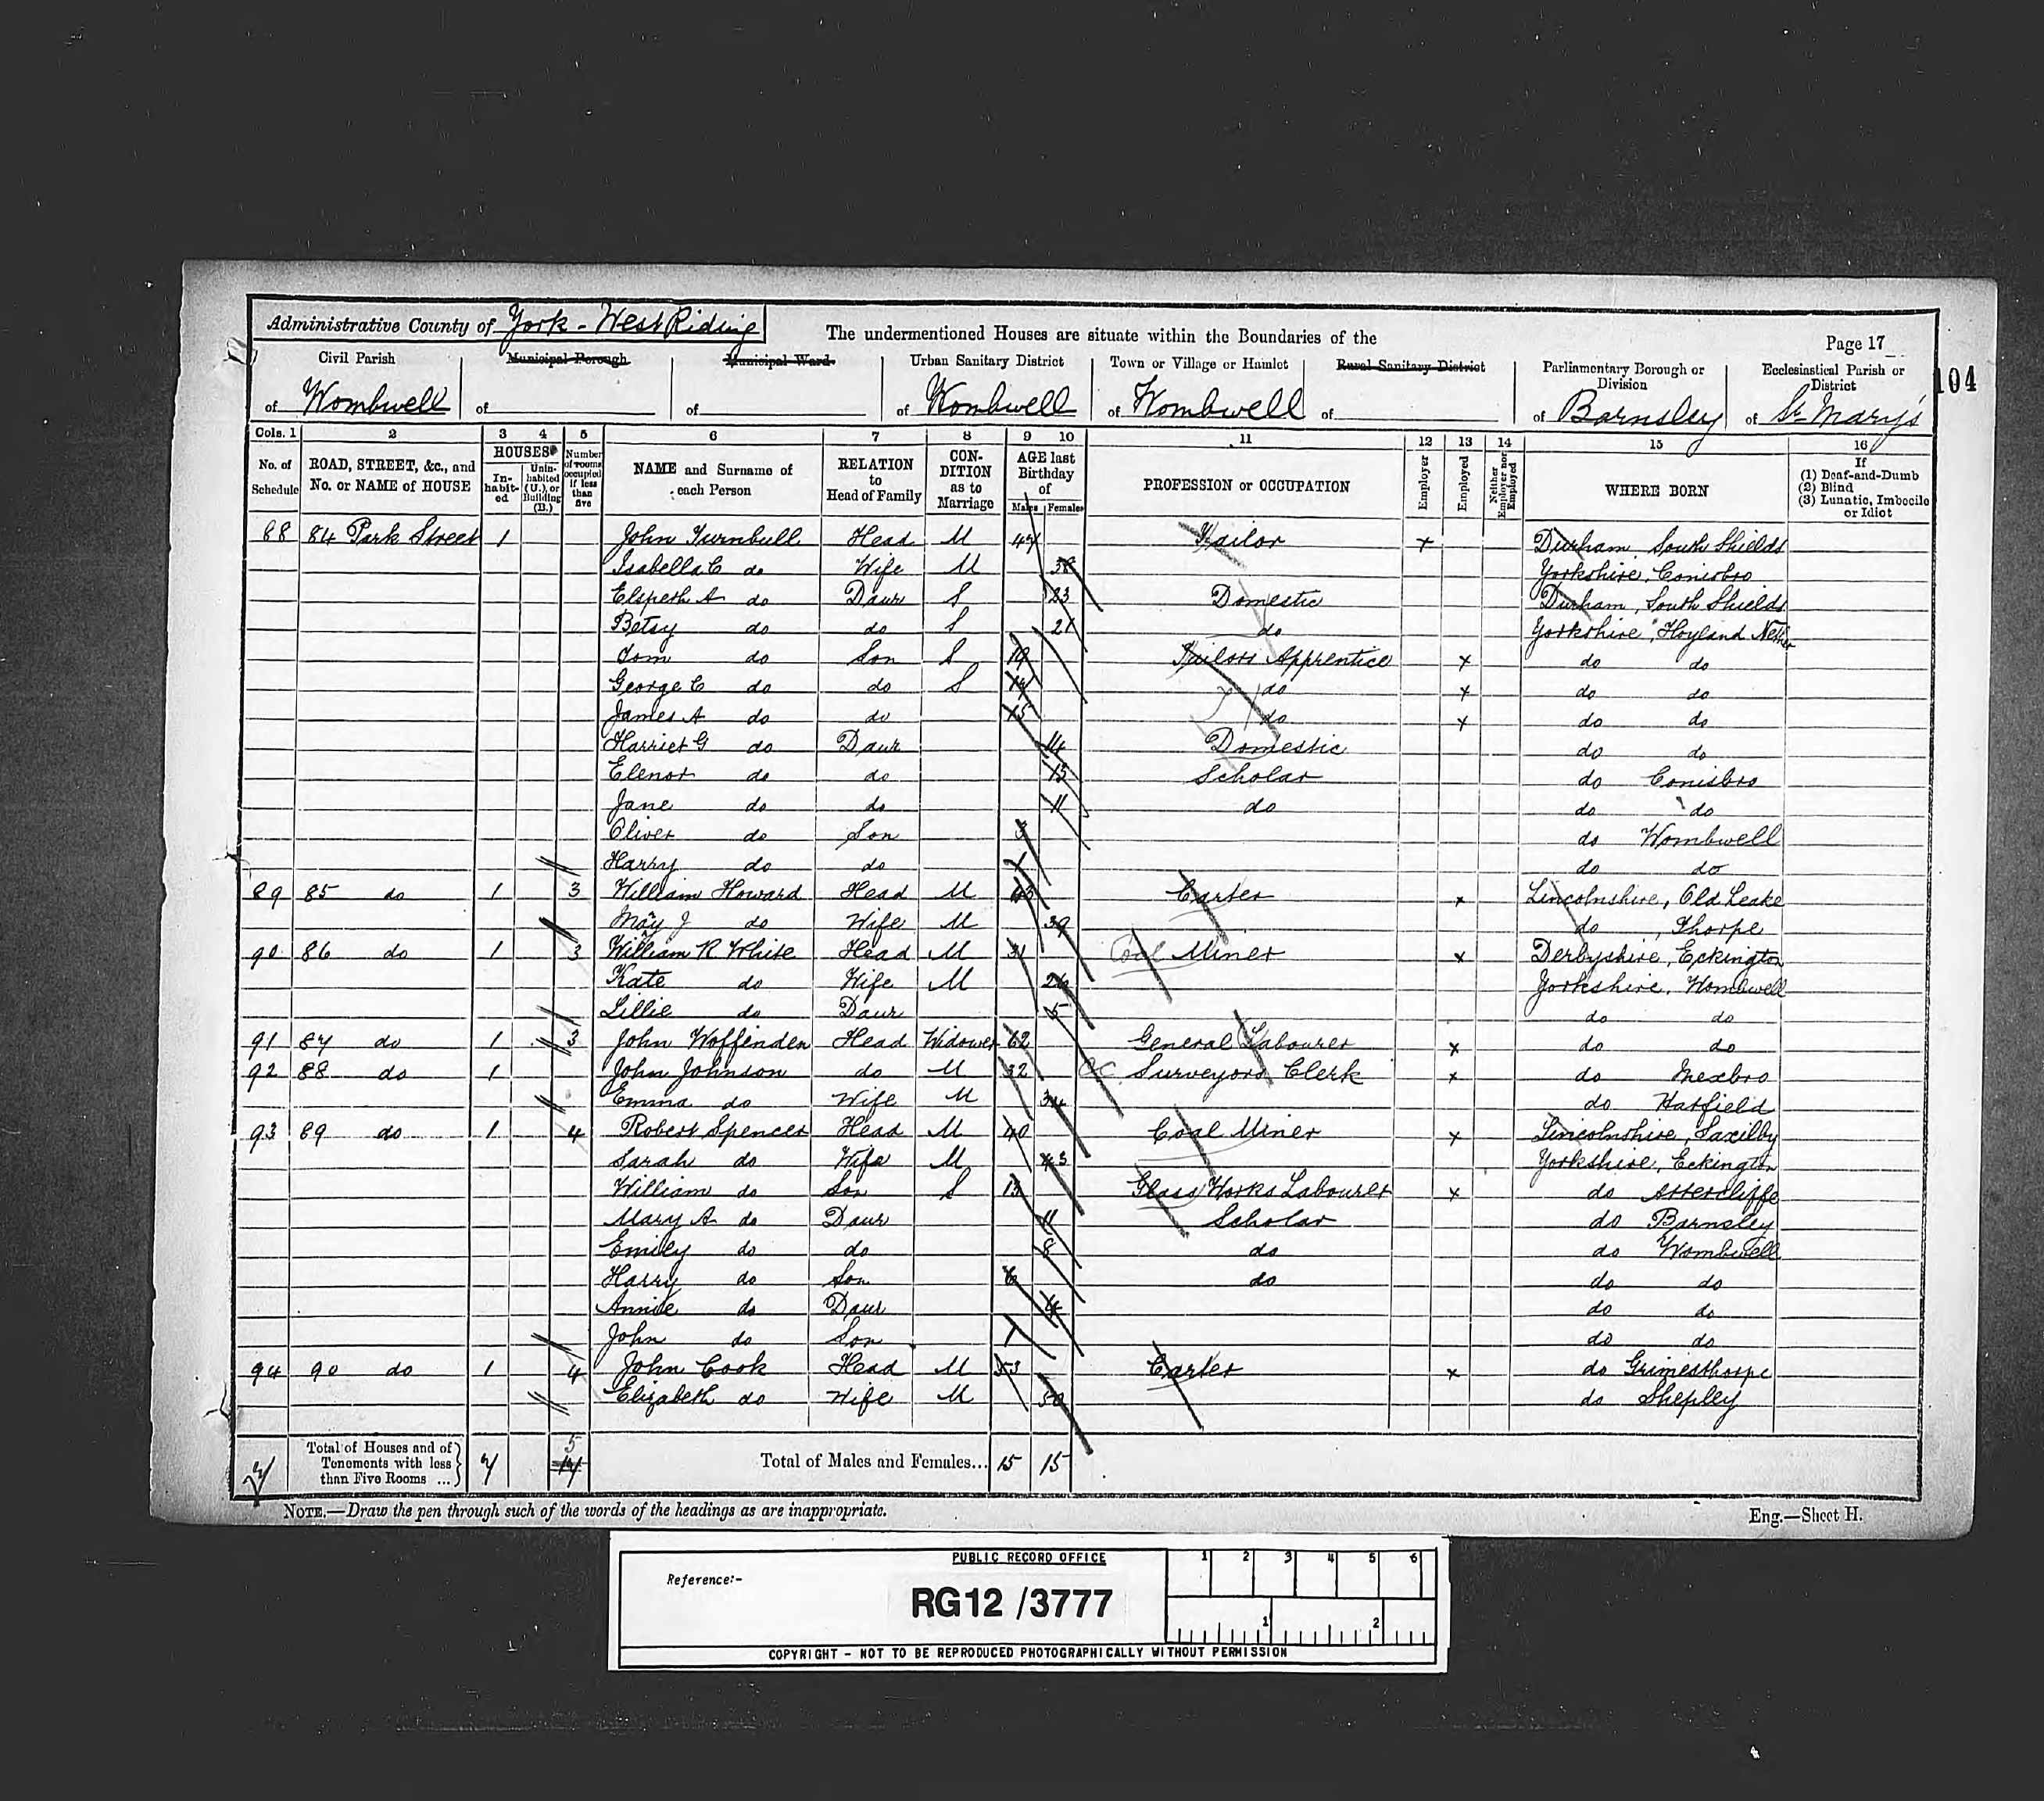 Administrative County of York - West Riding
The undermentioned Houses are situate within the Boundaries of the
Page 17
104
Civil Parish of Wombwell
Municipal Borough of
Municipal Ward of
Urban Sanitary District of Wombwell
Town or Village or Hamlet of Wombwell
Rural Sanitary District of
Parliamentary Borough or Division of Barnsley
Ecclesiastical Parish or District of St Mary's
Cols. 1 2 3 4 5 6 7 8 9 10 11 12 13 14 15 16
No. of Schedule
ROAD, STREET, &c., and No. or NAME of HOUSE
HOUSES
In-habit-ed
Unin-habited (U.), or Building (B.)
Number of rooms occupied if less than five
NAME and Surname of each Person
RELATION to Head of Family
CON-DITION as to Marriage
AGE last Birthday of
Males Females
PROFESSION or OCCUPATION
Employer
Employed
Neither Employer nor Employed
WHERE BORN
If (1) Deaf-and-Dumb (2) Blind (3) Lunatic, Imbecile or Idiot
88 84 Park Street 1 John Turnbull Head M 47 Tailor x Durham, South Shields
Isabella C do Wife M 38 Yorkshire, Conisbro
Elspeth A do Daur S 23 Domestic Durham, South Shields
Betsy do do S 21 do Yorkshire, Hoyland Nether
Tom do Son S 19 Tailors Apprentice x do do
George C do do S 17 do x do do
James A do do 15 do x do do
Harriet G do Daur 14 Domestic do do
Elenor do do 13 Scholar do Conisbro
Jane do do 11 do do do
Oliver do Son 3 do Wombwell
Harry do do 1 do do
89 85 do 1 3 William Howard Head M 43 Carter x Lincolnshire, Old Leake
Mary J do Wife M 39 do, Thorpe
90 86 do 1 3 William R White Head M 31 Coal Miner x Derbyshire, Eckington
Kate do Wife M 26 Yorkshire, Wombwell
Lillie do Daur 5 do do
91 87 do 1 3 John Woffinden Head Widower 62 General Labourer x do do
92 88 do 1 John Johnson do M 32 Surveyors Clerk x do Mexbro
Emma do Wife M 34 do Hatfield
93 89 do 1 4 Robert Spencer Head M 40 Coal Miner x Lincolnshire, Saxilby
Sarah do Wife M 43 Yorkshire, Eckington
William do Son S 13 Glass Works Labourer x do Attercliffe
Mary A do Daur 11 Scholar do Barnsley
Emily do do 8 do do Wombwell
Harry do Son 6 do do do
Annie do Daur 4 do do
John do Son 1 do do
94 90 do 1 4 John Cook Head M 53 Carter x do Grimesthorpe
Elizabeth do Wife M 50 do Shepley
7 Total of Houses and of Tenements with less than Five Rooms ... 7 5 Total of Males and Females... 15 15
NOTE.—Draw the pen through such of the words of the headings as are inappropriate.
Eng.—Sheet H.
PUBLIC RECORD OFFICE
1 2 3 4 5 6
Reference:-
RG12 /3777
1 2
COPYRIGHT - NOT TO BE REPRODUCED PHOTOGRAPHICALLY WITHOUT PERMISSION